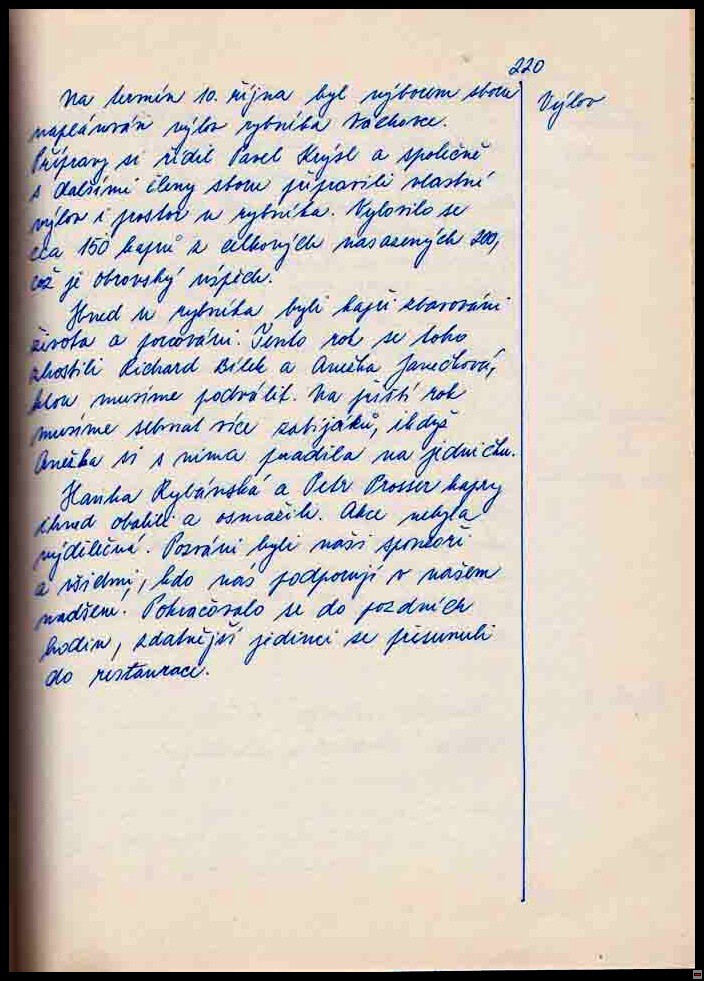 220
Výlov
Na termín 10. října byl výborem sboru
naplánován výlov rybníka Valchovce.
Přípravy si řídil Pavel Krýsl a společně
s dalšími členy sboru připravili vlastní
výlov i prostor u rybníka. Vylovilo se
cca 150 kaprů z celkových nasazených 200,
což je obrovský úspěch.
Hned u rybníka byli kapři zbavováni
života a porcováni. Tento rok se toho
zhostili Richard Bílek a Anežka Janečková,
kterou musíme podchválit. Na příští rok
musíme sehnat více zabijáků, i když
Anežka si s nima poradila na jedničku.
Hanka Rybánská a Petr Prosser kapry
ihned obalili a osmažili. Akce nebyla
výdělečná. Pozváni byli naši sponzoři
a všichni, kdo nás podporují v našem
nadšení. Pokračovalo se do pozdních
hodin, zdatnější jedinci se přesunuli
do restaurace.